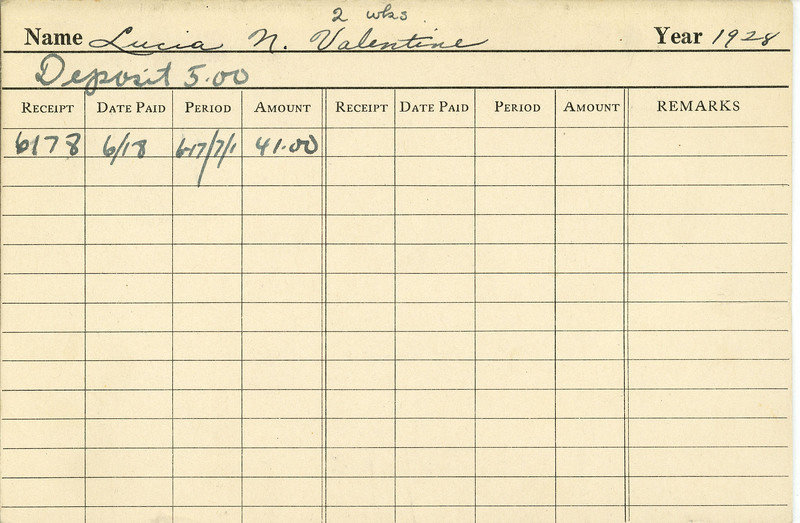 2 wks.
Name Lucia N. Valentine Year 1928
Deposit 5.00
RECEIPT DATE PAID PERIOD AMOUNT RECEIPT DATE PAID PERIOD AMOUNT REMARKS
6178 6/18 6-17/7/1 41.00